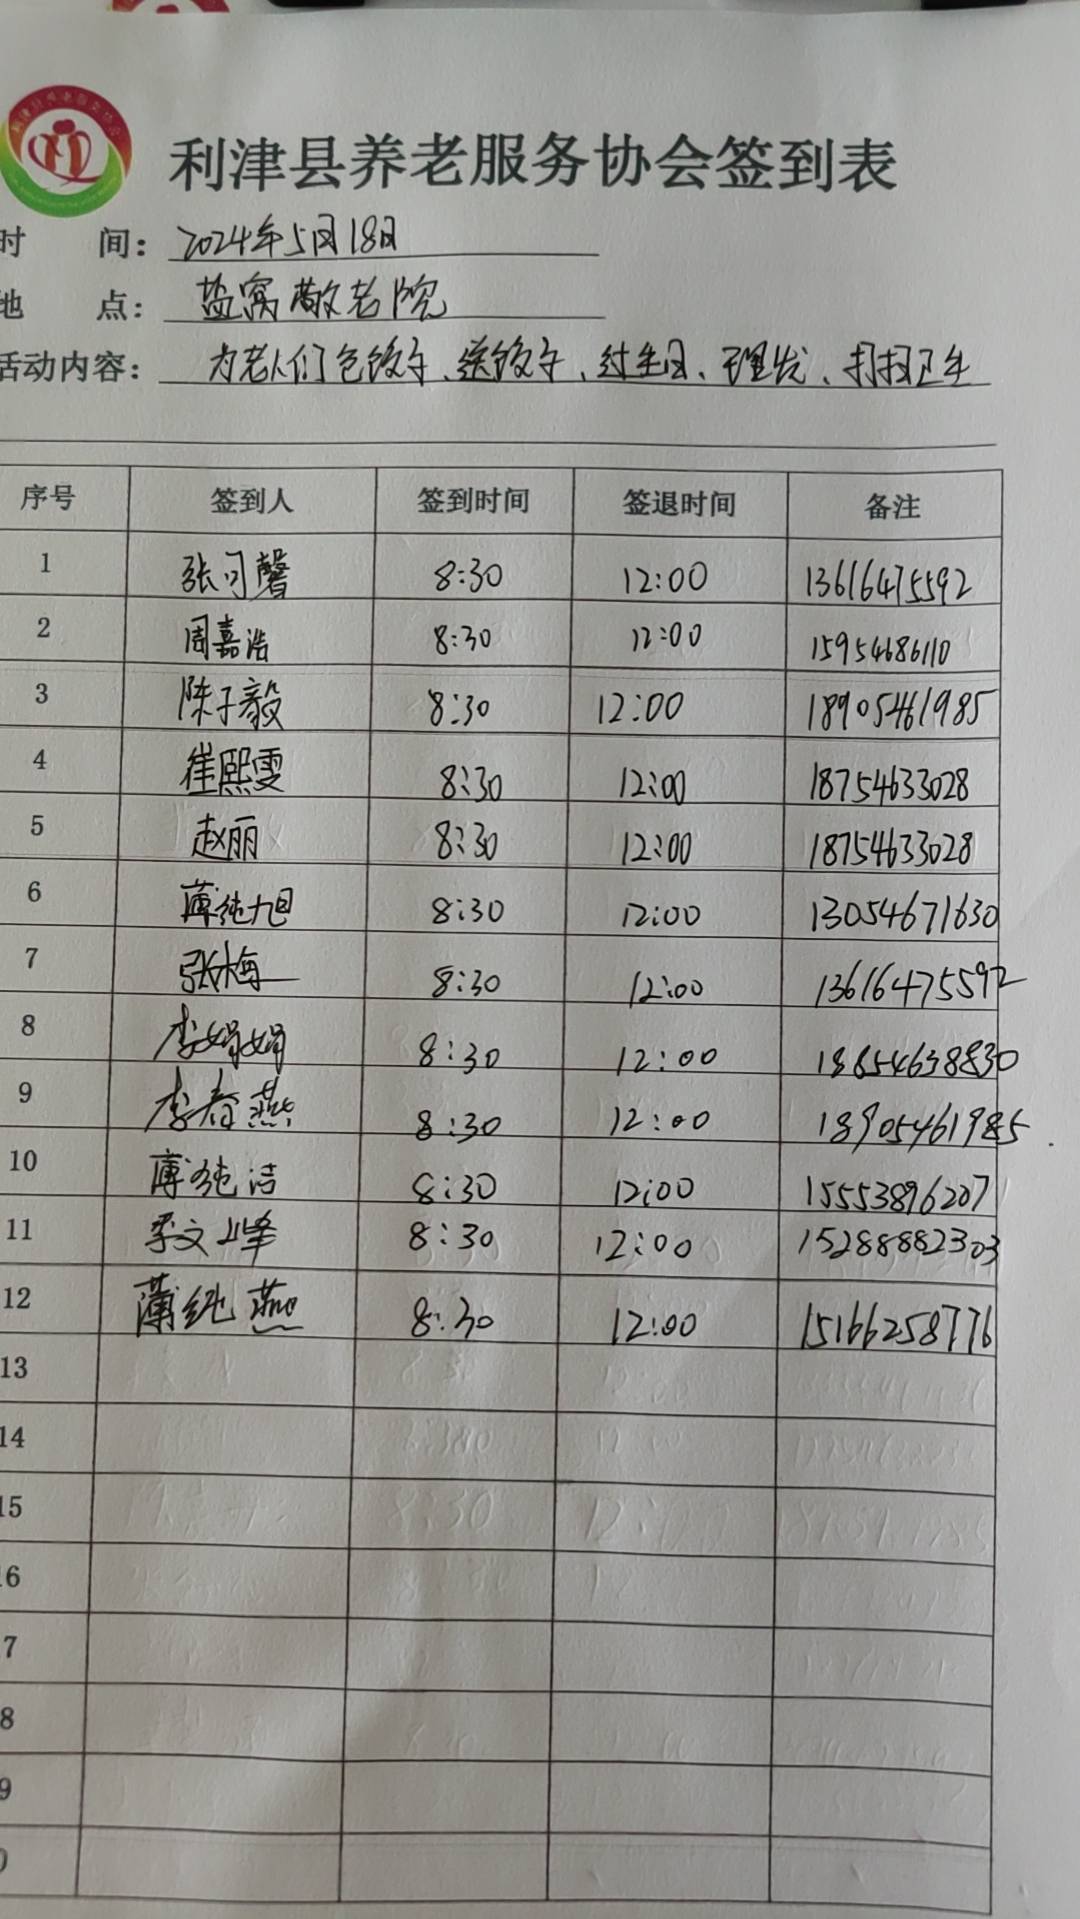 利津县养老服务协会签到表
时 间： 2024年5月18日
地 点： 盐窝敬老院
活动内容： 为老人们包饺子、送饺子、过生日、理发、打扫卫生
序号 签到人 签到时间 签退时间 备注
1 张可馨 8:30 12:00 13616475592
2 周嘉浩 8:30 12:00 15954686110
3 陈子毅 8:30 12:00 18905461985
4 崔熙雯 8:30 12:00 18754633028
5 赵丽 8:30 12:00 18754633028
6 薄纯旭 8:30 12:00 13054671630
7 张梅 8:30 12:00 13616475592
8 李娟娟 8:30 12:00 18854638830
9 李春燕 8:30 12:00 18905461985
10 薄纯洁 8:30 12:00 15553896207
11 李文峰 8:30 12:00 15288882303
12 薄纯燕 8:30 12:00 15166258776
13
14
15
16
7
8
9